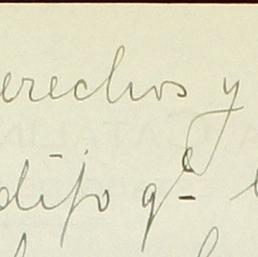 erechos y
dijo qe